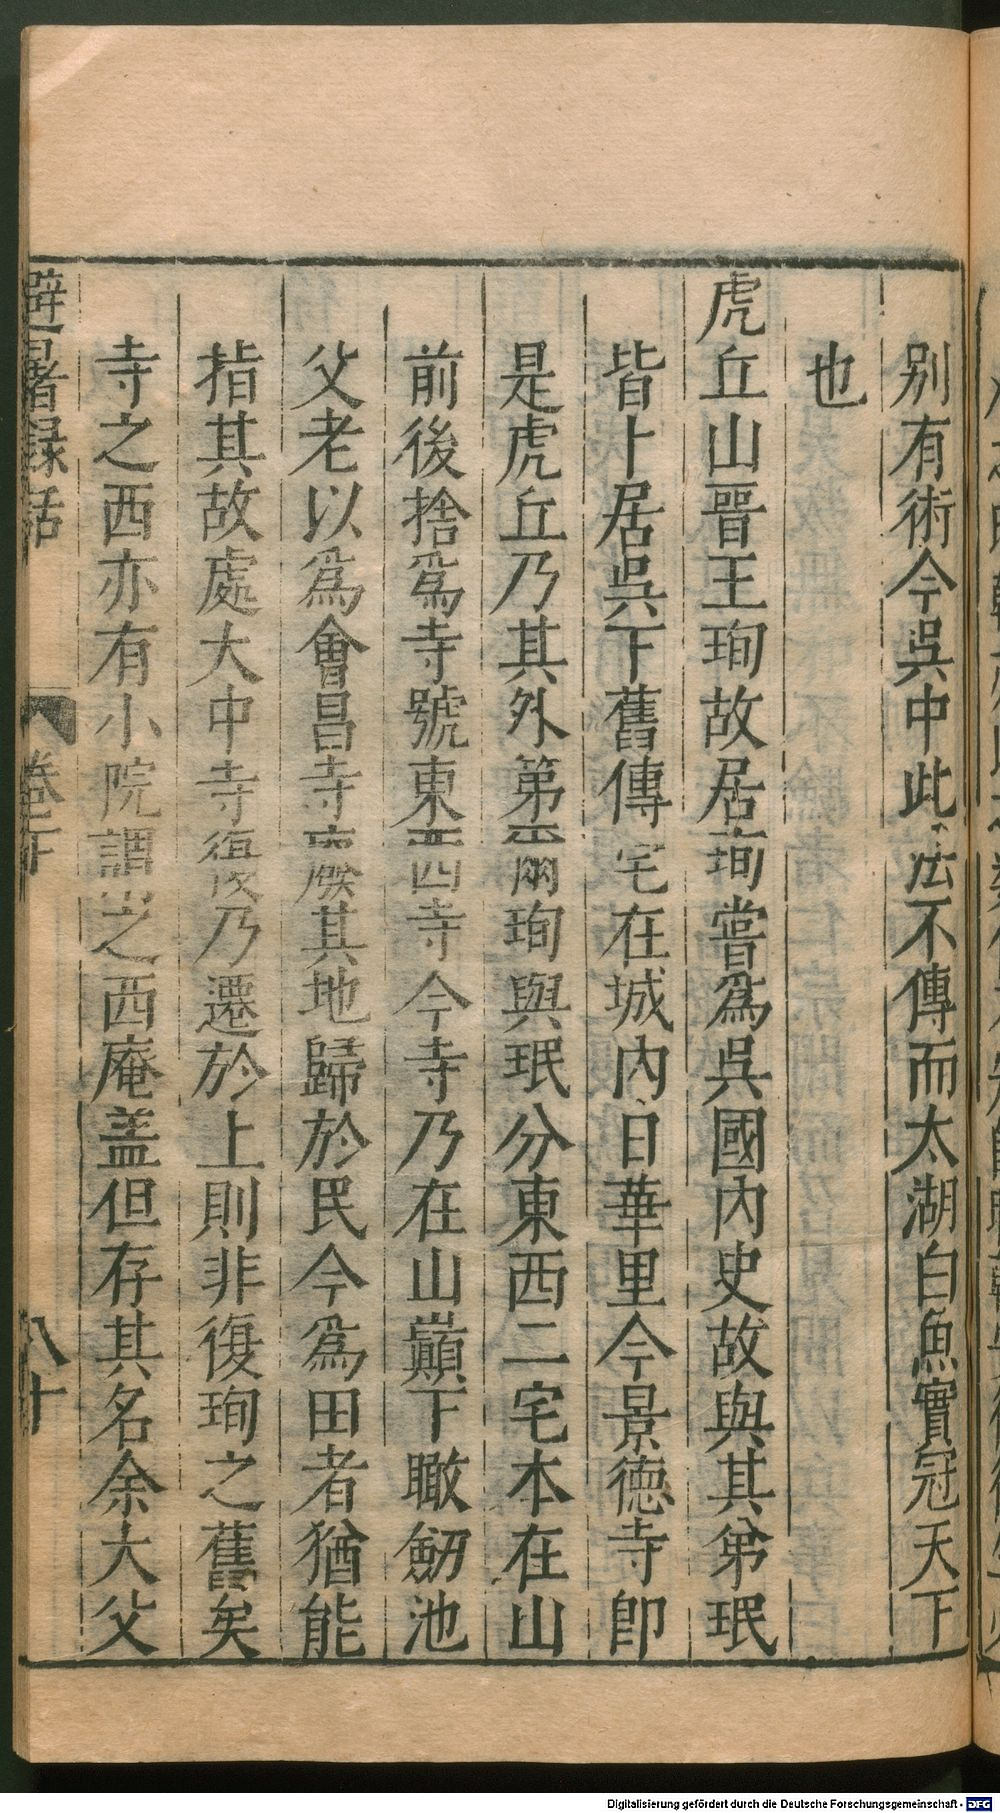 別有術今吳中此法不傳而太湖白魚實冠天下
也
虎丘山晉王珣故居珣嘗爲吳國內史故與其弟珉
皆卜居吳下舊傳宅在城內日華里今景德寺卽
是虎丘乃其外第爾珣與珉分東西二宅本在山
前後捨爲寺號東西四寺今寺乃在山巔下瞰劒池
父老以爲會昌寺廢其地歸於民今爲田者猶能
指其故處大中寺復乃遷於上則非復珣之舊矣
寺之西亦有小院謂之西庵盖但存其名余大父
避暑録話
卷下
八十
Digitalisierung gefördert durch die Deutsche Forschungsgemeinschaft - DFG